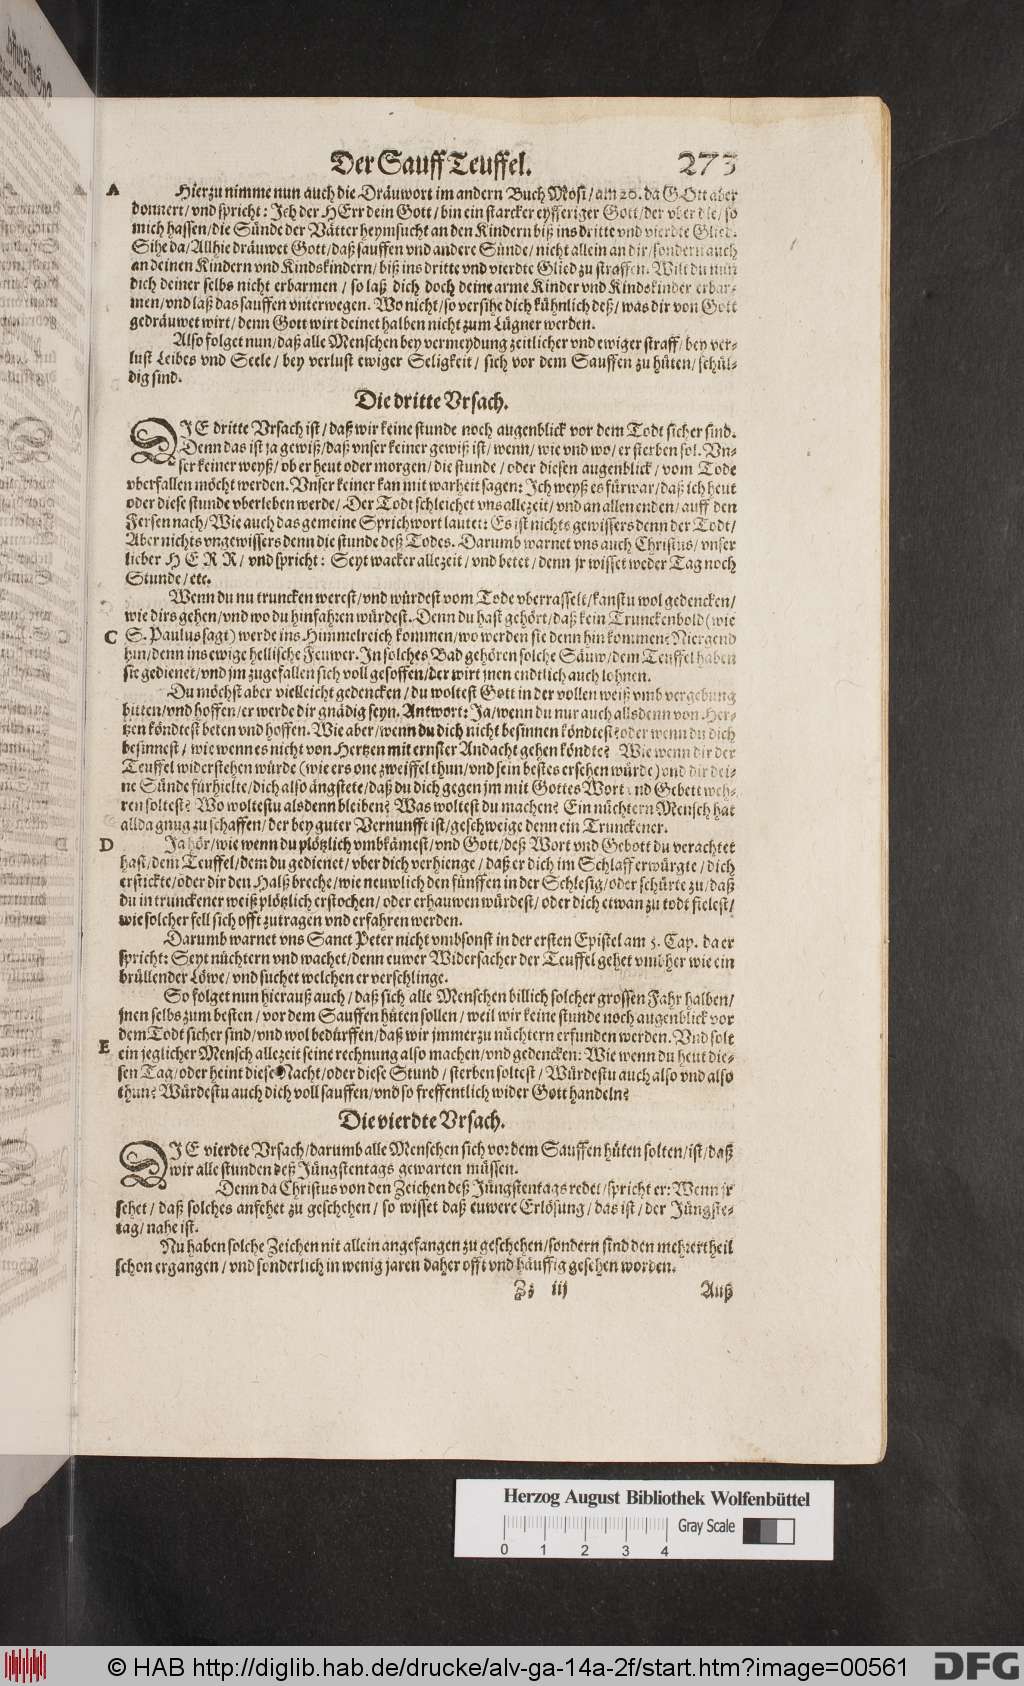 Der Sauff Teuffel. 273
A Hierzu nimme nun auch die Dräuwort im andern Buch Mosi / am 20. da GOtt aber
donnert / vnd spricht: Ich der HErr dein Gott / bin ein starcker eyfferiger Gott / der vber die / so
mich hassen / die Sünde der Vätter heymsucht an den Kindern biß ins dritte vnd vierdte Glied.
Sihe da / Allhie dräuwet Gott / daß sauffen vnd andere Sünde / nicht allein an dir / sondern auch
an deinen Kindern vnd Kindskindern / biß ins dritte vnd vierdte Glied zu straffen. Wilt du nun
dich deiner selbs nicht erbarmen / so laß dich doch deine arme Kinder vnd Kindskinder erbar-
men / vnd laß das sauffen vnterwegen. Wo nicht / so versihe dich kühnlich deß / was dir von Gott
gedräuwet wirt / denn Gott wirt deinet halben nicht zum Lügner werden.
Also folget nun / daß alle Menschen bey vermeydung zeitlicher vnd ewiger straff / bey ver-
lust Leibes vnd Seele / bey verlust ewiger Seligkeit / sich vor dem Sauffen zu hüten / schül-
dig sind.
Die dritte Vrsach.
DIE dritte Vrsach ist / daß wir keine stunde noch augenblick vor dem Todt sicher sind.
Denn das ist ja gewiß / daß vnser keiner gewiß ist / wenn / wie vnd wo / er sterben sol. Vn-
ser keiner weyß / ob er heut oder morgen / die stunde / oder diesen augenblick / vom Tode
vberfallen möcht werden. Vnser keiner kan mit warheit sagen: Ich weyß es fürwar / daß ich heut
oder diese stunde vberleben werde / Der Todt schleichet vns allezeit / vnd an allen enden / auff den
Fersen nach / Wie auch das gemeine Sprichwort lautet: Es ist nichts gewissers denn der Todt /
Aber nichts vngewissers denn die stunde deß Todes. Darumb warnet vns auch Christus / vnser
lieber HERR / vnd spricht: Seyt wacker allezeit / vnd betet / denn jr wisset weder Tag noch
Stunde / etc.
Wenn du nu truncken werest / vnd würdest vom Tode vberrasselt / kanstu wol gedencken /
wie dirs gehen / vnd wo du hinfahren würdest. Denn du hast gehört / daß kein Trunckenbold (wie
C S. Paulus sagt) werde ins Himmelreich kommen / wo werden sie denn hin kommen? Niergend
hin / denn ins ewige hellische Feuwer. In solches Bad gehören solche Säuw / dem Teuffel haben
sie gedienet / vnd jm zugefallen sich voll gesoffen / der wirt jnen endtlich auch lohnen.
Du möchst aber vielleicht gedencken / du woltest Gott in der vollen weiß vmb vergebung
bitten / vnd hoffen / er werde dir gnädig seyn. Antwort: Ja / wenn du nur auch alsdenn von Her-
tzen köndtest beten vnd hoffen. Wie aber / wenn du dich nicht besinnen köndtest? oder wenn du dich
besinnest / wie wenn es nicht von Hertzen mit ernster Andacht gehen köndte? Wie wenn dir der
Teuffel widerstehen würde (wie er s one zweiffel thun / vnd sein bestes ersehen würde) vnd dir dei-
ne Sünde fürhielte / dich also ängstete / daß du dich gegen jm mit Gottes Wort vnd Gebett weh-
ren soltest? Wo woltestu alsdenn bleiben? Was woltest du machen? Ein nüchtern Mensch hat
allda gnug zu schaffen / der bey guter Vernunfft ist / geschweige denn ein Trunckener.
D Ja hör / wie wenn du plötzlich vmbkämest / vnd Gott / deß Wort vnd Gebott du verachtet
hast / dem Teuffel / dem du gedienet / vber dich verhienge / daß er dich im Schlaff erwürgte / dich
erstickte / oder dir den Halß breche / wie neuwlich den fünffen in der Schlesig / oder schürte zu / daß
du in trunckener weiß plötzlich erstochen / oder erhauwen würdest / oder dich etwan zu todt fielest /
wie solcher fell sich offt zutragen vnd erfahren werden.
Darumb warnet vns Sanct Peter nicht vmbsonst in der ersten Epistel am 5. Cap. da er
spricht: Seyt nüchtern vnd wachet / denn euwer Widersacher der Teuffel gehet vmbher wie ein
brüllender Löwe / vnd suchet welchen er verschlinge.
So folget nun hierauß auch / daß sich alle Menschen billich solcher grossen Fahr halben /
jnen selbs zum besten / vor dem Sauffen hüten sollen / weil wir keine stunde noch augenblick vor
dem Todt sicher sind / vnd wol bedürffen / daß wir jmmerzu nüchtern erfunden werden. Vnd solt
E ein jeglicher Mensch allezeit seine rechnung also machen / vnd gedencken: Wie wenn du heut die-
sen Tag / oder heint diese Nacht / oder diese Stund / sterben soltest / Würdestu auch also vnd also
thun? Würdestu auch dich voll sauffen / vnd so freffentlich wider Gott handeln?
Die vierdte Vrsach.
DIE vierdte Vrsach / darumb alle Menschen sich vor dem Sauffen hüten solten / ist / daß
wir alle stunden deß Jüngstentags gewarten müssen.
Denn da Christus von den Zeichen deß Jüngstentags redet / spricht er: Wenn jr
sehet / daß solches anfehet zu geschehen / so wisset daß euwere Erlösung / das ist / der Jüngste-
tag / nahe ist.
Nu haben solche Zeichen nit allein angefangen zu geschehen / sondern sind den mehrertheil
schon ergangen / vnd sonderlich in wenig jaren daher offt vnd häuffig gesehen worden.
Zz iij Auß
Herzog August Bibliothek Wolfenbüttel
Gray Scale
0 1 2 3 4
© HAB http://diglib.hab.de/drucke/alv-ga-14a-2f/start.htm?image=00561 DFG